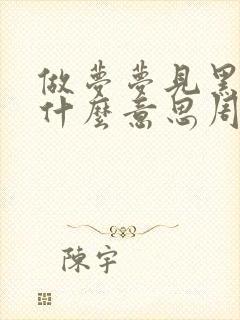 做夢夢見黑
什麼意思周
陳宇